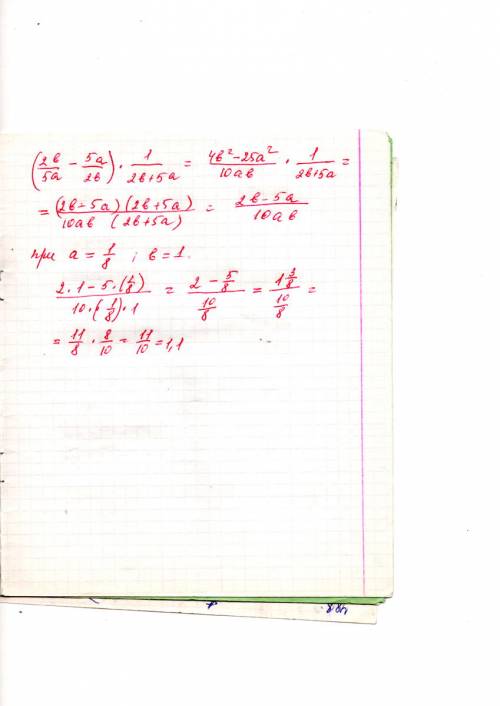 (2в/5а − 5а/2в) · 1/(2в+5а) = (4в²−25а²)/(10ав) · 1/(2в+5а) =
= (2в−5а)(2в+5а)/(10ав (2в+5а)) = (2в−5а)/(10ав)
при а = 1/8 ; в = 1.
(2·1−5·(1/8))/(10·(1/8)·1) = (2 − 5/8)/(10/8) = (1 3/8)/(10/8) =
= 11/8 · 8/10 = 11/10 = 1,1